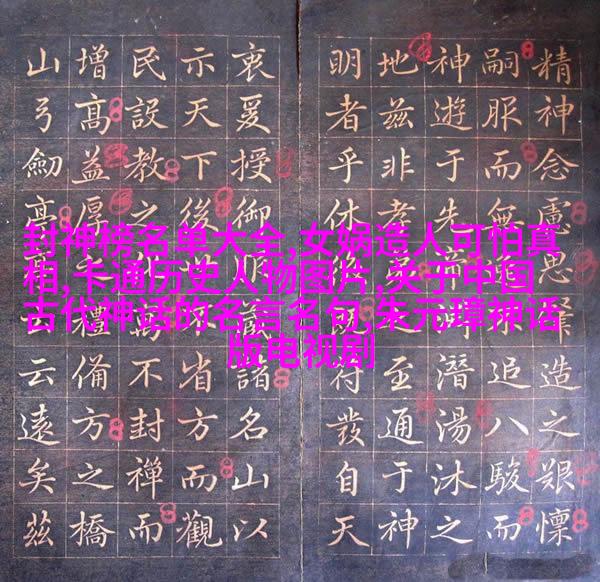 精神念慮思造之艱懍
嗣服而無追八駿而
神遊于先潛湯沐之
地茲非孝至通于神
明者乎休符發自天
衷爰授御諸名山以
示天下後省方而觀
民設教之不封禪而
增高益厚禮備方之橋
山弓劒云遠矣茲
封神榜名单大全,女娲造人可怕真
相,卡通历史人物图片,关于中国
古代神话的名言名句,朱元璋神话
版电视剧